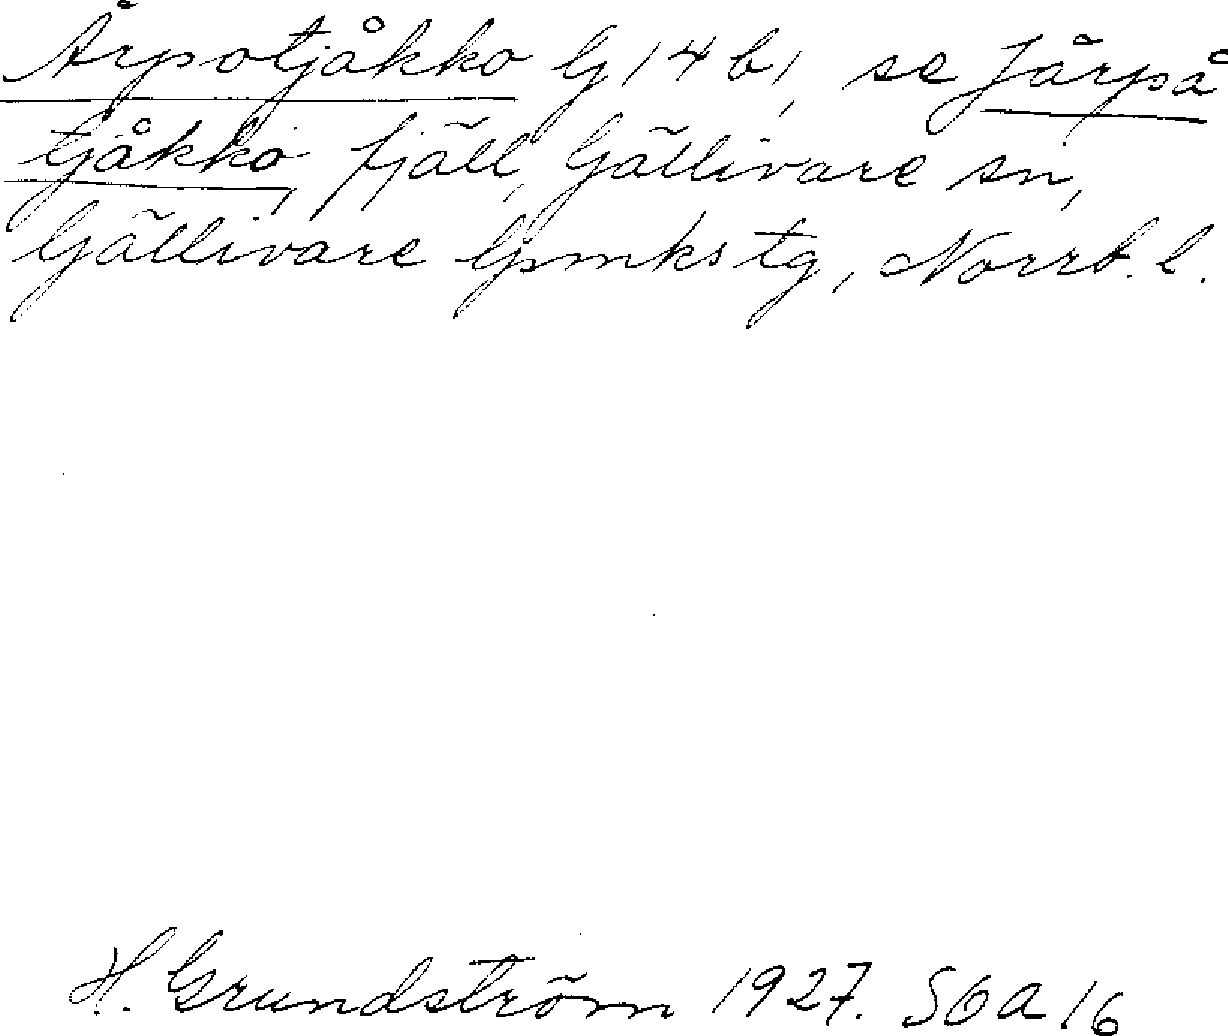 Årpotjåkko G 14 b, se Jårpå
tjåkko, fjäll, Gällivare sn,
Gällivare lpmkstg, Norrb. l.
H. Grundström 1927. SOA 16